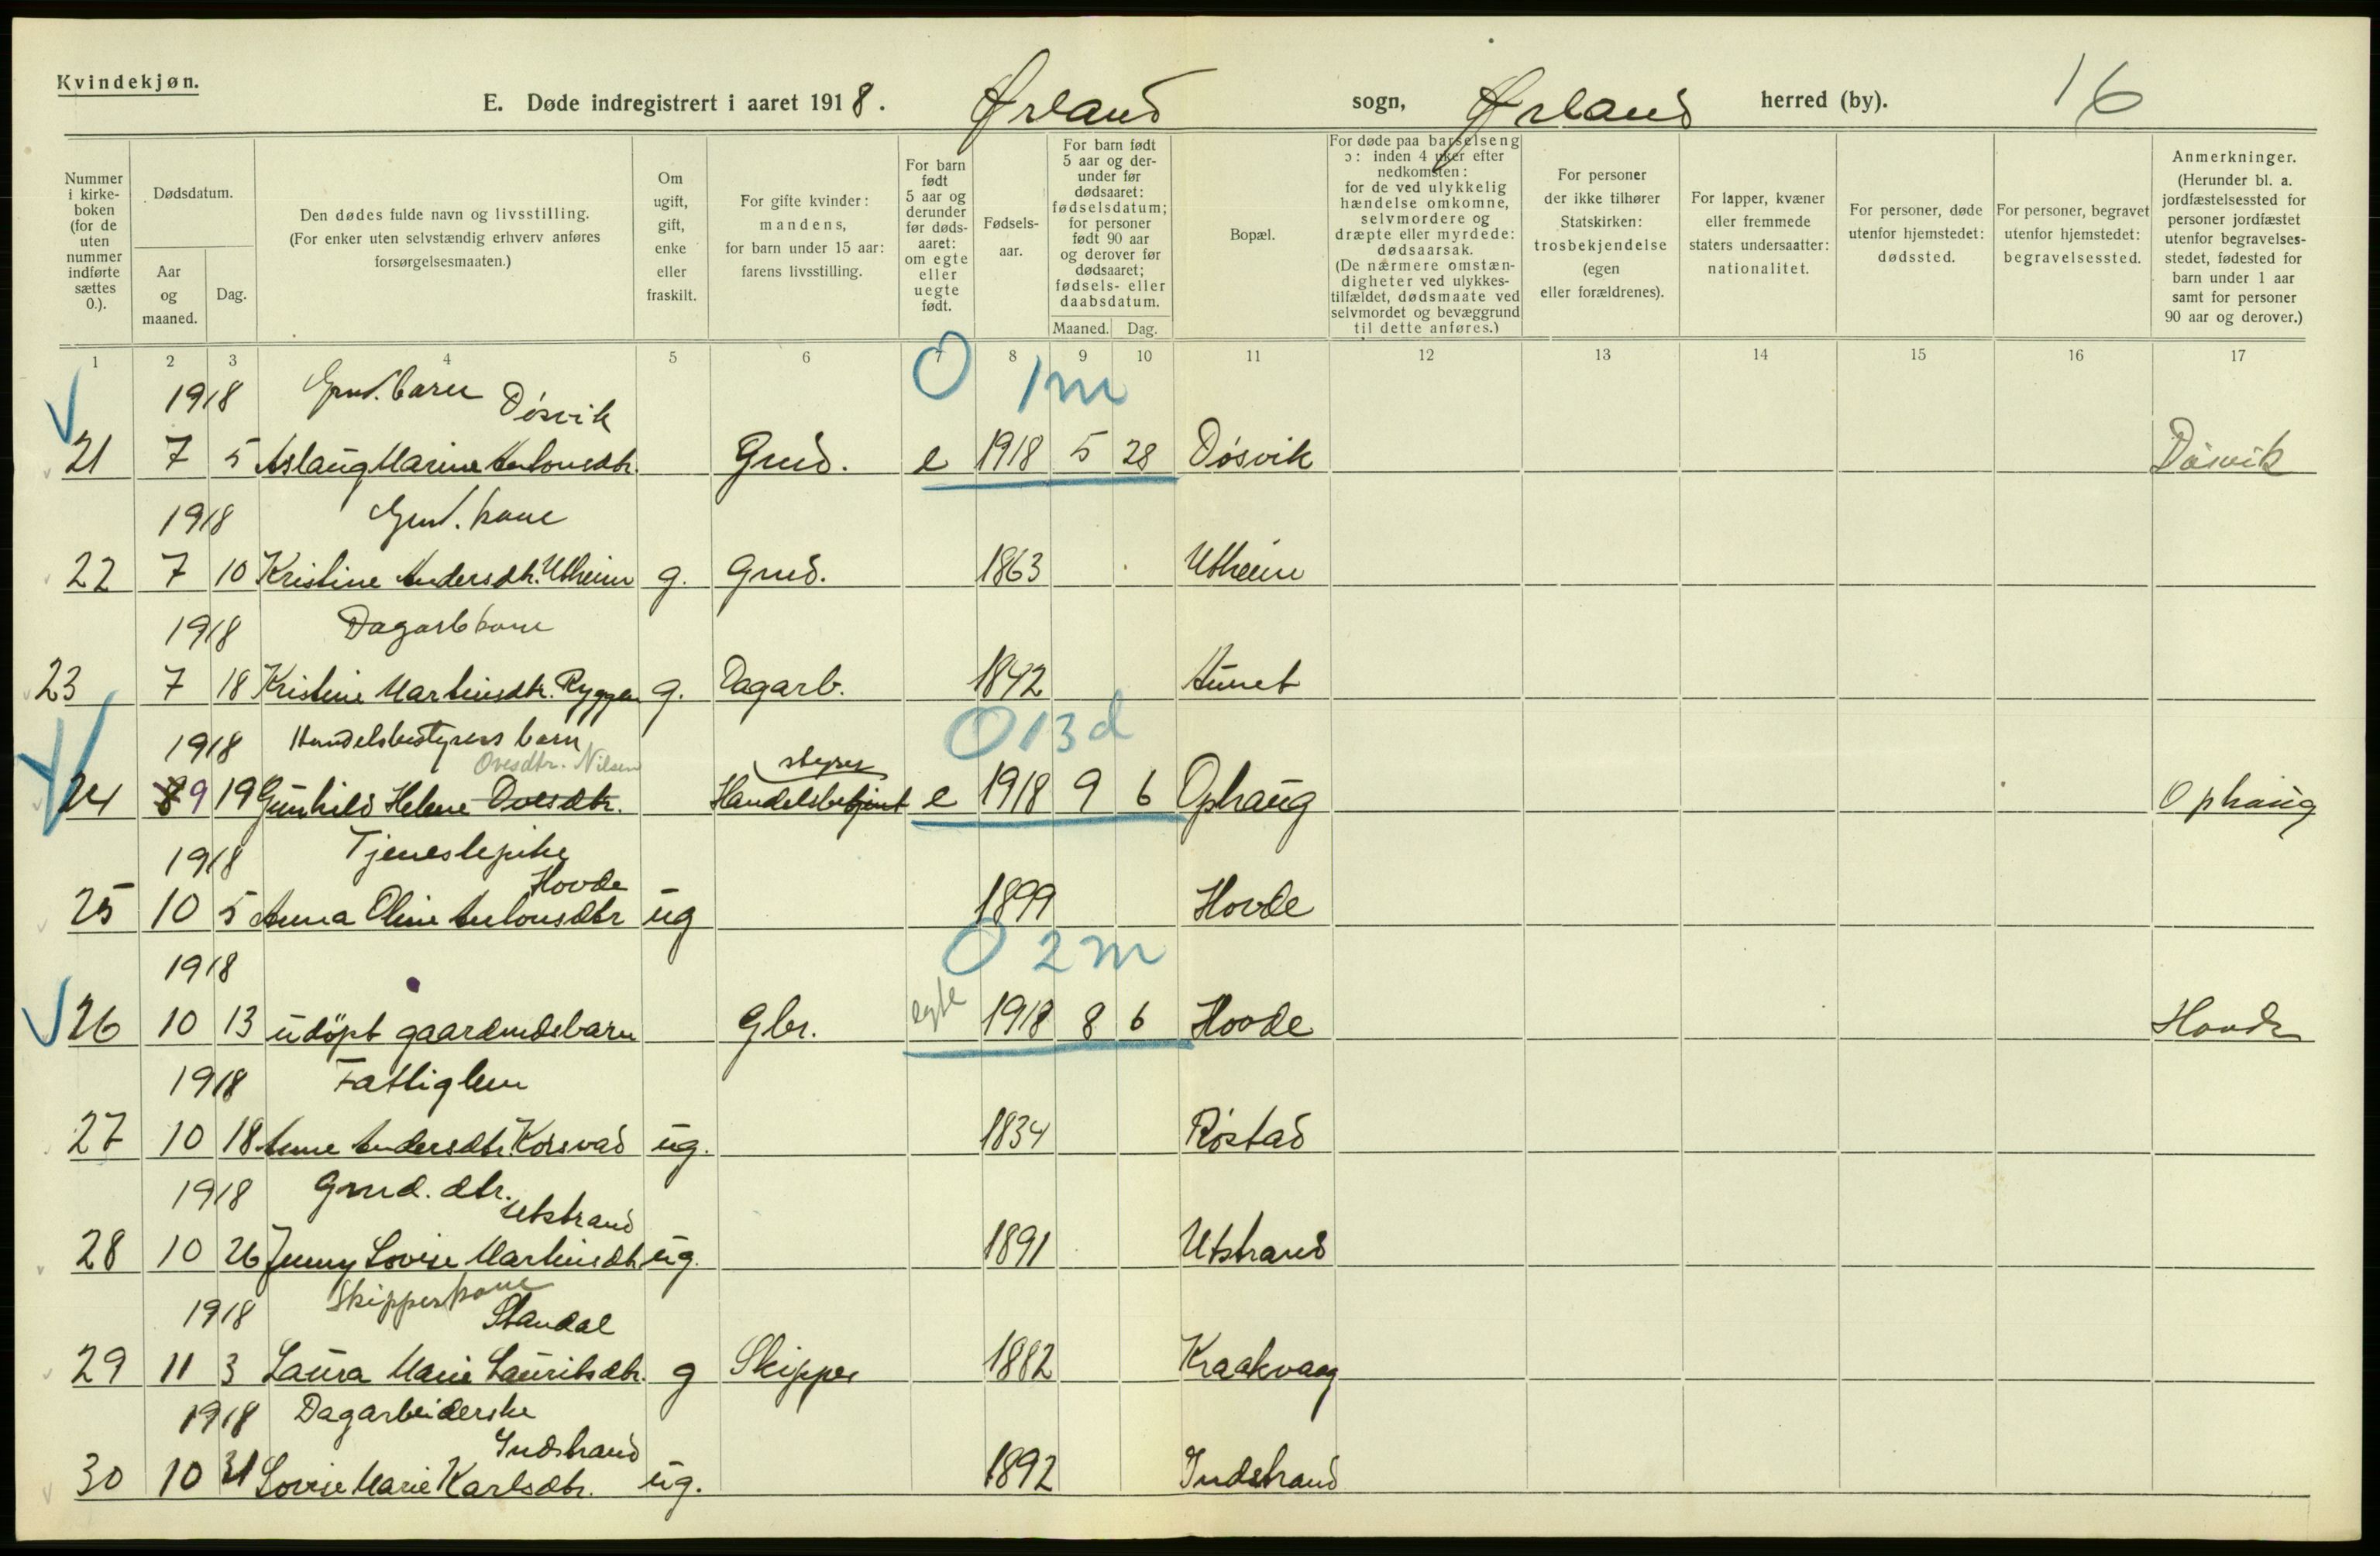 Kvindekjøn.
E. Døde indregistrert i aaret 1918. Ørland sogn, Ørland herred (by). 16
Nummer i kirke-boken (for de uten nummer indførte sættes 0.).
Dødsdatum.
Aar og maaned.
Dag.
Den dødes fulde navn og livsstilling. (For enker uten selvstændig erhverv anføres forsørgelsesmaaten.)
Om ugift, gift, enke eller fraskilt.
For gifte kvinder: mandens, for barn under 15 aar: farens livsstilling.
For barn født 5 aar og derunder før døds-aaret: om egte eller uegte født.
Fødsels-aar.
For barn født 5 aar og der-under før dødsaaret: fødselsdatum; for personer født 90 aar og derover før dødsaaret; fødsels- eller daabsdatum.
Maaned. Dag.
Bopæl.
For døde paa barselseng ɔ: inden 4 uker efter nedkomsten: for de ved ulykkelig hændelse omkomne, selvmordere og dræpte eller myrdede: dødsaarsak. (De nærmere omstæn-digheter ved ulykkes-tilfældet, dødsmaate ved selvmordet og bevæggrund til dette anføres.)
For personer der ikke tilhører Statskirken: trosbekjendelse (egen eller forældrenes).
For lapper, kvæner eller fremmede staters undersaatter: nationalitet.
For personer, døde utenfor hjemstedet: dødssted.
For personer, begravet utenfor hjemstedet: begravelsessted.
Anmerkninger. (Herunder bl. a. jordfæstelsessted for personer jordfæstet utenfor begravelses-stedet, fødested for barn under 1 aar samt for personer 90 aar og derover.)
1 2 3 4 5 6 7 8 9 10 11 12 13 14 15 16 17
1918 Grud. barn Døsvik O 1m
21 7 5 Aslaug Marine Antonsdtr. Grud. e 1918 5 28 Døsvik Døsvik
1918 Grud. kone
22 7 10 Kristine Andersdtr. Utheim g. Grud. 1863 Utheim
1918 Dagarb kone
23 7 18 Kristine Martinsdtr. Ryggen g. Dagarb. 1842 Aunet
1918 Handelsbestyrers barn O 13d
Ovesdtr. Nilsen styrer
24 8 9 19 Gunhild Helene Ovesdtr. Handelsbetjent e 1918 9 6 Ophaug Ophaug
1918 Tjenestepike
Hovde
25 10 5 Anna Oline Antonsdtr ug 1899 Hovde
1918 O 2m
26 10 13 udöpt gaardmdsbarn Gbr. egte 1918 8 6 Hovde Hovde
1918 Fattiglem
27 10 18 Anne Andersdtr. Korsvad ug. 1834 Røstad
1918 Grud. dtr. Utstrand
28 10 26 Jenny Lovise Martinsdtr ug. 1891 Utstrand
Skipperkone
1918 Standal
29 11 3 Laura Marie Lauritsdtr. g Skipper 1882 Kraakvaag
1918 Dagarbeiderske
Indstrand
30 10 31 Lovise Marie Karlsdtr. ug. 1892 Indstrand